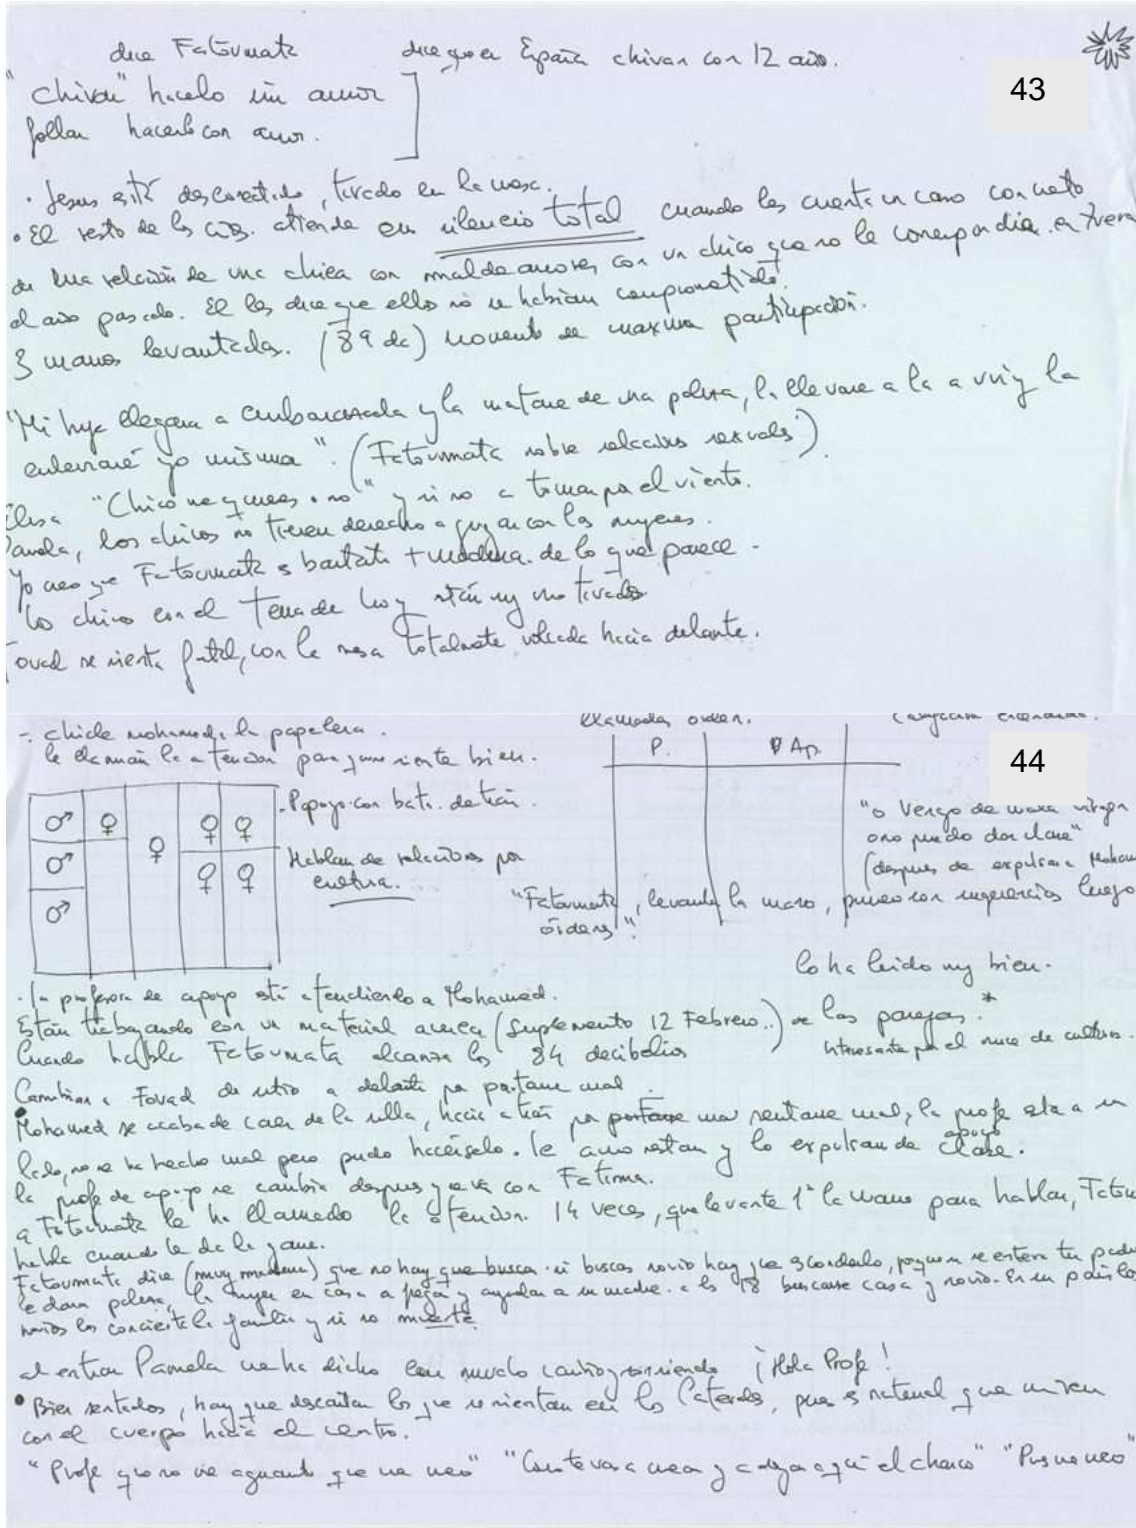 dice Fatoumata dice que en España chivan con 12 años.
"chivar" hacerlo sin amor
follar hacerlo con amor.
43
. Jesus está desconectado, tirado en la mesa.
. El resto de los atiende en silencio total cuando les cuenta un caso concreto
de una relación de una chica con mal de amores con un chico que no le correspondía. en
el año pasado. El les dice que ellos no se habían comprometido.
3 manos levantadas. (89 dc) momento de maxima participación.
"Mi hija llegara a embarazada y la matare de una paliza, la llevare a la y la
enterraré yo misma". (Fatoumata sobre relaciones sexuales)
Elisa "Chico me quieres o no" y si no a tomar por el viento.
Pamela, los chicos no tienen derecho a jugar con las mujeres.
Yo creo que Fatoumata es bastante + moderna de lo que parece.
los chicos con el tema de hoy están muy motivados
Fouad se sienta fatal, con la mesa totalmente volcada hacia delante.
- chicle mohamed a la papelera.
le llaman la atencion para que se siente bien.
llamadas orden.
P. Ap.
44
♂ ♀ ♀ ♀
♂ ♀ ♀ ♀
♂
. P apoyo con bata. detrás.
Hablan de relaciones por
cultura.
"o Vengo de mala virgen
o no puedo dar clase"
(despues de expulsar a Moham
"Fatoumata, levanta la mano, pareo con sugerencias luego
órdenes".
lo ha leido muy bien.
. La profesora de apoyo está atendiendo a Mohamed.
Están trabajando con un material acerca (Suplemento 12 Febrero..) de las parejas.*
Cuando habla Fatoumata alcanza los 84 decibelios interesante por el cruce de culturas.
Cambian a Fouad de sitio a delante por portarse mal.
• Mohamed se acaba de caer de la silla, hacia atrás por portarse mal sentarse mal, la profe apoyo esta a su
lado, no se ha hecho mal pero pudo hacérselo. le amonestan y lo expulsan de clase.
la profe de apoyo se cambia despues y se va con Fatima.
a Fatoumata le ha llamado la atención 14 veces, que levante 1º la mano para hablar, Fatou
habla cuando le da la gana.
Fatoumata dice (muy madura) que no hay que busca. si buscas novio hay que esconderlo, porque si se entera tu padre
le dara paliza, la mujer en casa a fregar y ayudar a su madre. a los 18 buscarse casa y novio. En su país los
novios los concierta la familia y si no muerte
al entrar Pamela me ha dicho con mucho cariño y sonriendo ¡Hola Profe!
• Bien sentados, hay que descartar los que se sientan en los laterales, pues es natural que miren
con el cuerpo hacia el centro.
"Profe que no me aguanto que me meo" "Conste vas a mear y a dejar aquí el charco" "Pues me meo"